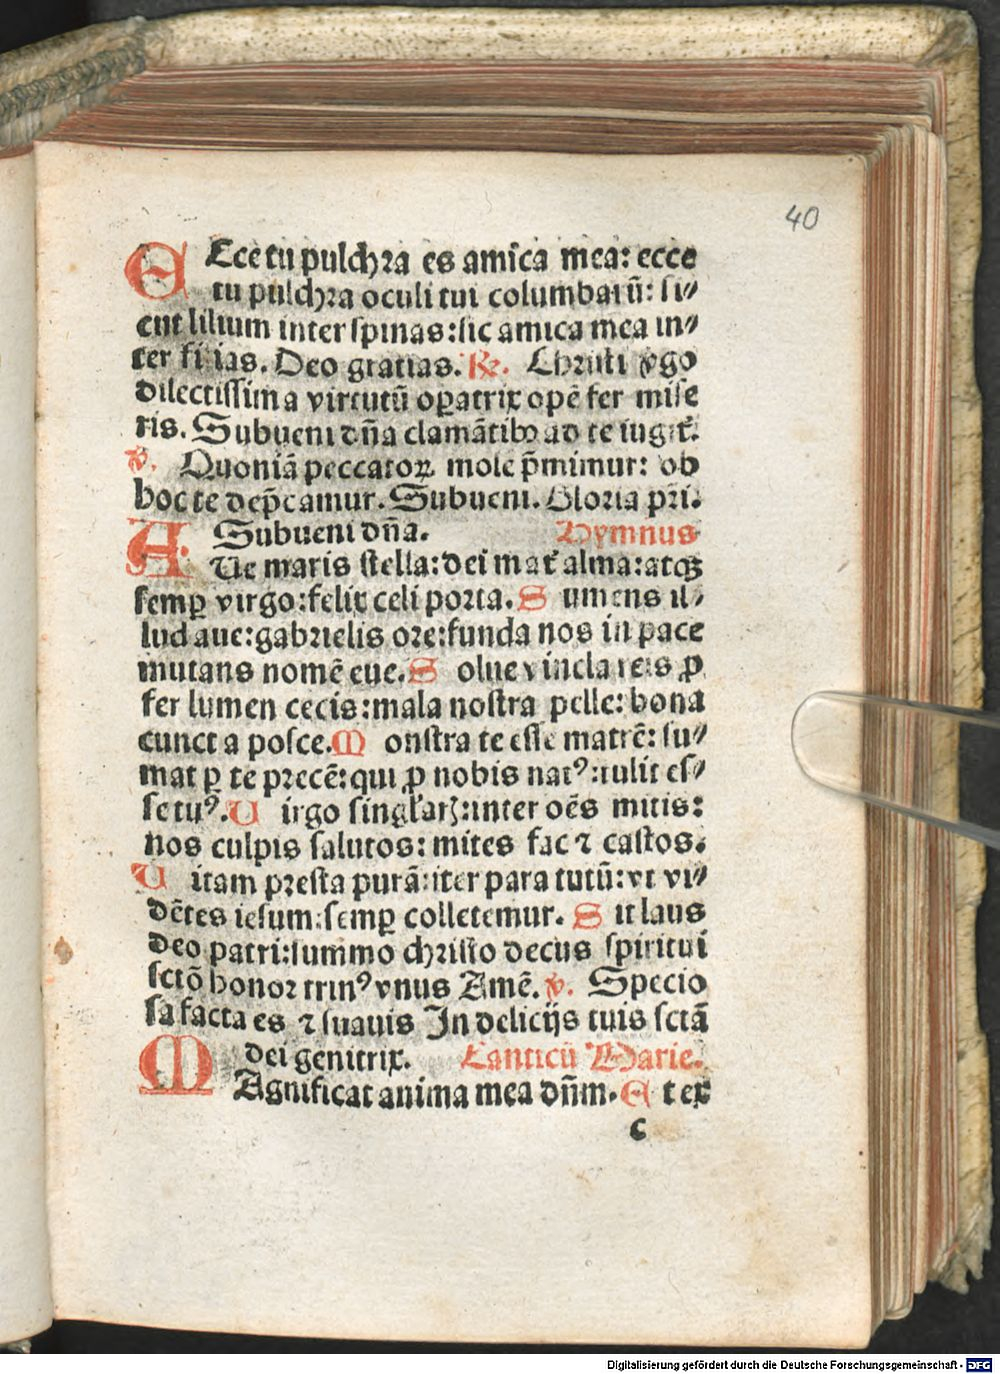 40
E Ecce tu pulchra es amica mea: ecce
tu pulchra oculi tui columbarū: si⸗
cut lilium inter spinas: sic amica mea in⸗
ter filias. Deo gratias. R̃. Christi v̾go
dilectissima virtutū oꝑatrix opē fer mise
ris. Subueni dn̄a clamātibꝰ ad te iugit̃.
v̾. Quoniā peccatoꝝ mole p̄mimur: ob
hoc te dep̄camur. Subueni. Gloria pr̄i.
Subueni dn̄a. Hymnus
A Ue maris stella: dei mat̃ alma: atqꝫ
semꝑ virgo: felix celi porta. S umens il⸗
lud aue: gabrielis ore: funda nos in pace
mutans nomē eue. S olue vincla reis ꝓ
fer lumen cecis: mala nostra pelle: bona
cuncta posce. M onstra te esse matrē: su⸗
mat ꝑ te precē: qui ꝓ nobis natꝰ: tulit es⸗
se tuꝰ. U irgo singl̓arꝭ: inter oēs mitis:
nos culpis solutos: mites fac ⁊ castos.
U itam presta purā: iter para tutū: vt vi⸗
dētes iesum: semꝑ colletemur. S it laus
deo patri: summo christo decus spiritui
sctō honor trinꝰ vnus Amē. v̾. Specio
sa facta es ⁊ suauis In delicijs tuis sctā
dei genitrix. Canticū Marie.
M Agnificat anima mea dn̄m. E t ex
c
Digitalisierung gefördert durch die Deutsche Forschungsgemeinschaft - DFG